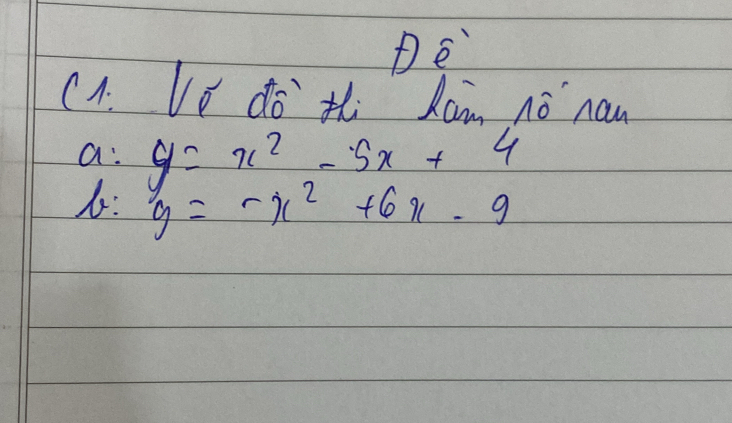 Đề
C1: Vẽ đồ thị hàm số sau
a: y = x² - 5x + 4
b: y = -x² + 6x - 9